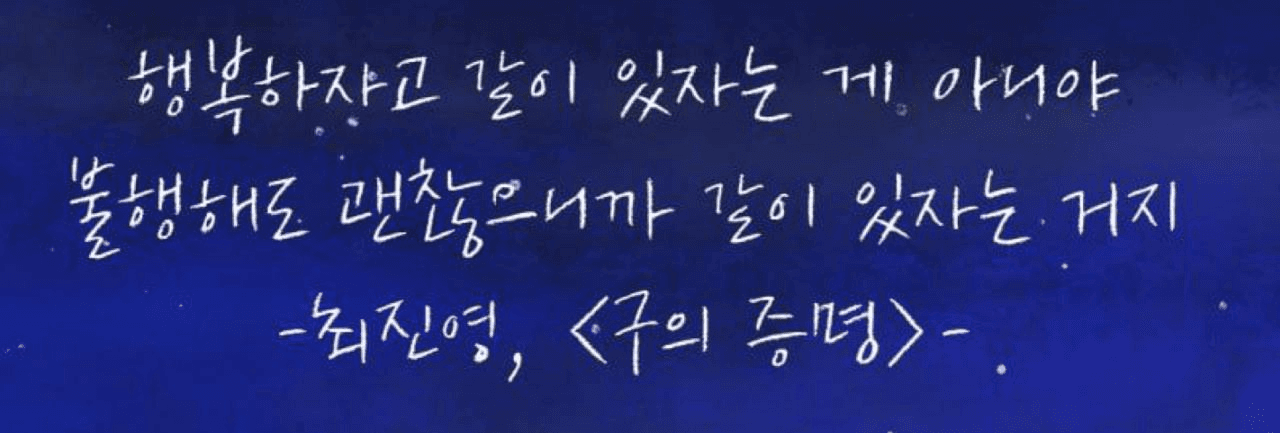 행복하자고 같이 있자는 게 아니야
불행해도 괜찮으니까 같이 있자는 거지
-최진영, <구의 증명>-